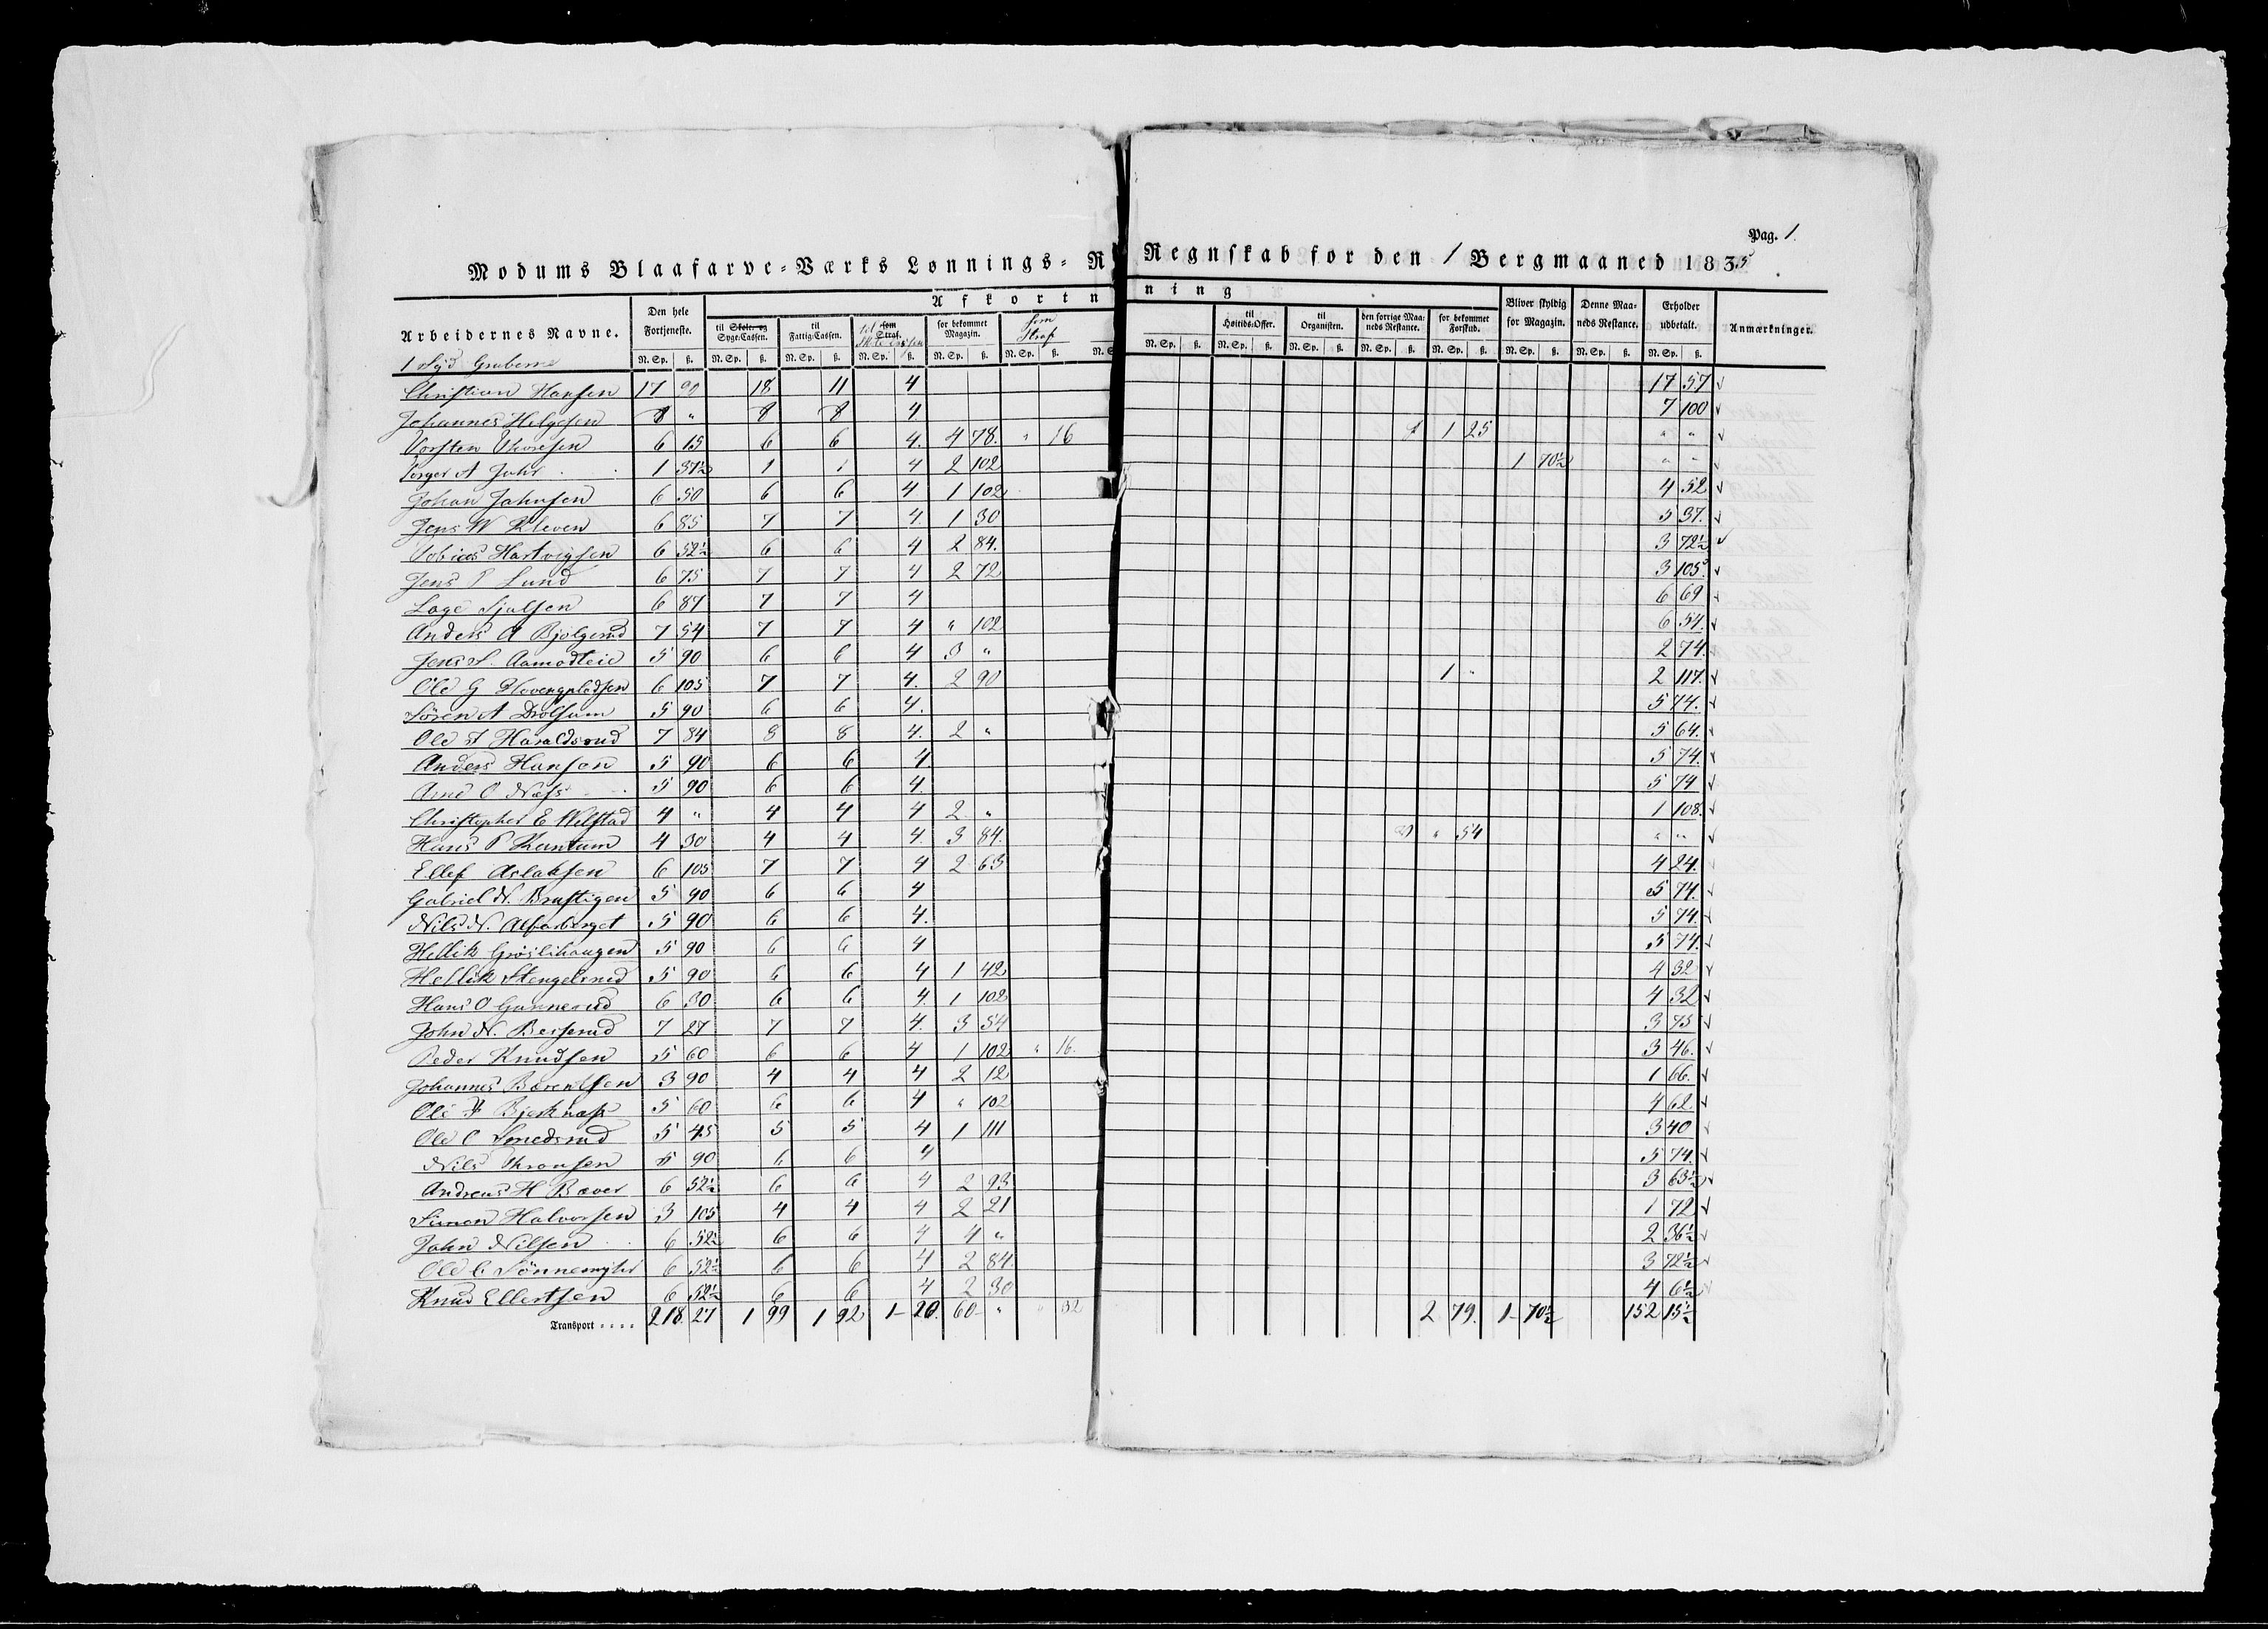 Pag. 1.
Modums Blaafarve-Værks Lønnings- R Regnskab for den 1 Bergmaaned 1835
Arbeidernes Navne. Den hele Fortjeneste. Afkortn ning Bliver skyldig for Magazin. Denne Maaneds Restance. Erholder udbetalt. Anmærkninger.
til Skole- og Syge-Cassen. til Fattig-Cassen. til som Straf. for bekommet Magazin. som Straf til Høitids-Offer. til Organisten. den forrige Maaneds Restance. for bekommet Forskud.
N. Sp. ß. N. Sp. ß. N. Sp. ß. N. Sp. ß. N. Sp. ß. N. Sp. ß. N. S N. Sp. ß. N. Sp. ß. N. Sp. ß. N. Sp. ß. N. Sp. ß. N. Sp. ß. N. Sp. ß. N. Sp. ß.
Gruberne
Christian Hansen 17 90 18 11 4 17 57 √
Johannes Helgesen 8 " 8 8 4 7 100 √
Torsten Thoresen 6 15 6 6 4. 4 78. " 16 1 25 " " √
Torger A 1 37½ 1 1 4 2 102 1 70½ " " √
Johan Johnsen 6 50 6 6 4 1 102 4 52 √
Jens W Kleven 6 85 7 7 4. 1 30 5 37. √
Tobias Hartvigsen 6 52½ 6 6 4 2 84. 3 72½ √
Jens P Lund 6 75 7 7 4 2 72 3 105. √
Lage Sjulsen 6 87 7 7 4 6 69 √
Anders A Bjølgerud 7 54 7 7 4 " 102 6 54. √
Jens S. Aamodteie 5 90 6 6 4 3 " 2 74. √
Ole G 6 105 7 7 4. 2 90 1 " 2 117. √
Søren A Drolsum 5 90 6 6 4. 5 74. √
Ole A Haraldsrud 7 84 8 8 4. 2 " 5 64. √
Anders Hansen 5 90 6 6 4. 5 74. √
Arne O Næss 5 90 6 6 4. 5 74 √
Christopher E Wilstad 4 " 4 4 4 2 " 1 108. √
Hans P Kantum 4 30 4 4 4. 3 84. " 54 " " √
Ellef Aslaksen 6 105 7 7 4 2 63 4 24. √
Gabriel N. Brustigen 5 90 6 6 4 5 74. √
Nils N. Alfarberget 5 90 6 6 4. 5 74. √
Hellik Grøslihaugen 5 90 6 6 4 5 74. √
Hellik Stengelsrud 5 90 6 6 4 1 42 4 32 √
Hans O Gunnerud 6 30 6 6 4. 1 102 4 32 √
John N. Besserud 7 27 7 7 4. 3 54 3 75 √
Peder Knudsen 5 60 6 6 4 1 102 " 16. 3 46. √
Johannes Barentsen 3 90 4 4 4 2 12 1 66. √
Ole Bjerknæss 5 60 6 6 4 " 102 4 62 √
Ole O Smedsrud 5 45 5 5 4 1 111 3 40 √
Nils Thronsen 5 90 6 6 4 5 74. √
Andreas H Bæver 6 52½ 6 6 4 2 93 3 63½ √
Simon Halvorsen 3 105 4 4 4 2 21 1 72 √
John Nilsen 6 52½ 6 6 4 4 " 2 36½ √
Ole C Sønnemyhr 6 52½ 6 6 4 2 84. 3 72½ √
Knud Ellertsen 6 52½ 6 6 4 2 30 4 6½ √
Transport .... 218. 27 1 99 1 92 1 20. 60 " " 32 2 79. 1 70½ 152 15½